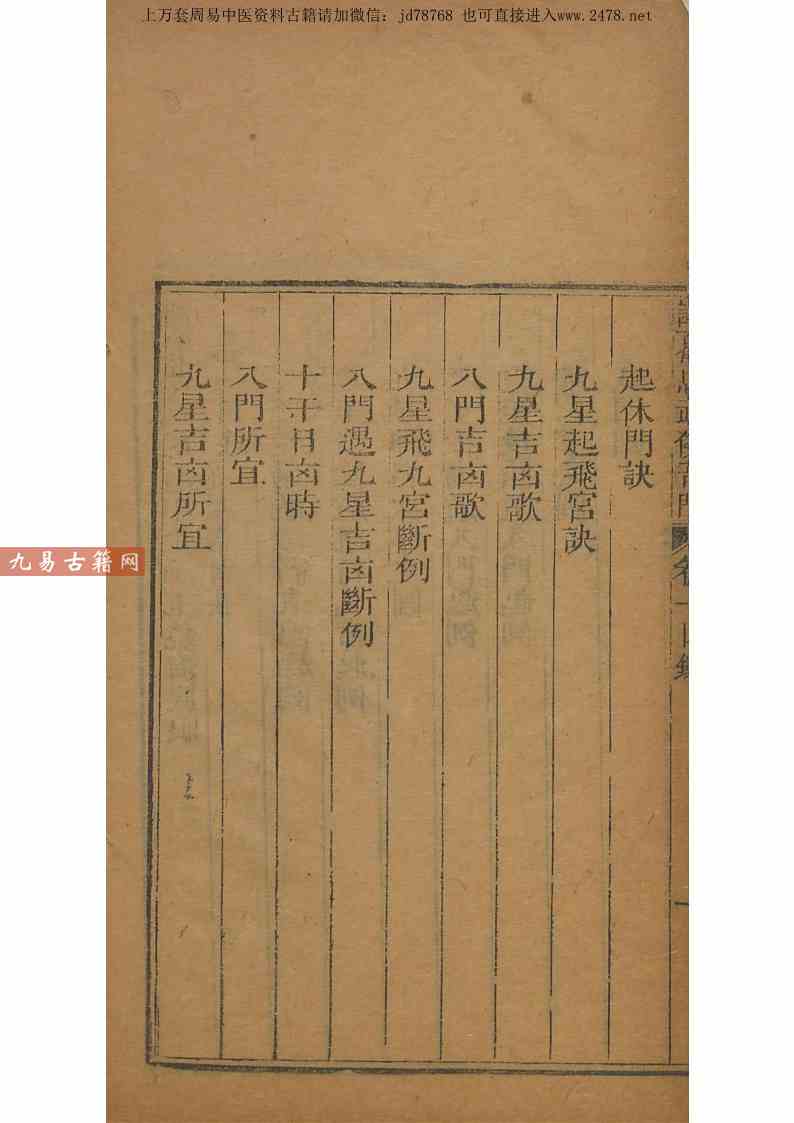 上万套周易中医资料古籍请加微信：jd78768 也可直接进入www.2478.net
起休門訣
九星起飛宮訣
九星吉凶歌
八門吉凶歌
九星飛九宮斷例
八門遇九星吉凶斷例
十干日凶時
八門所宜
九星吉凶所宜
九易古籍网